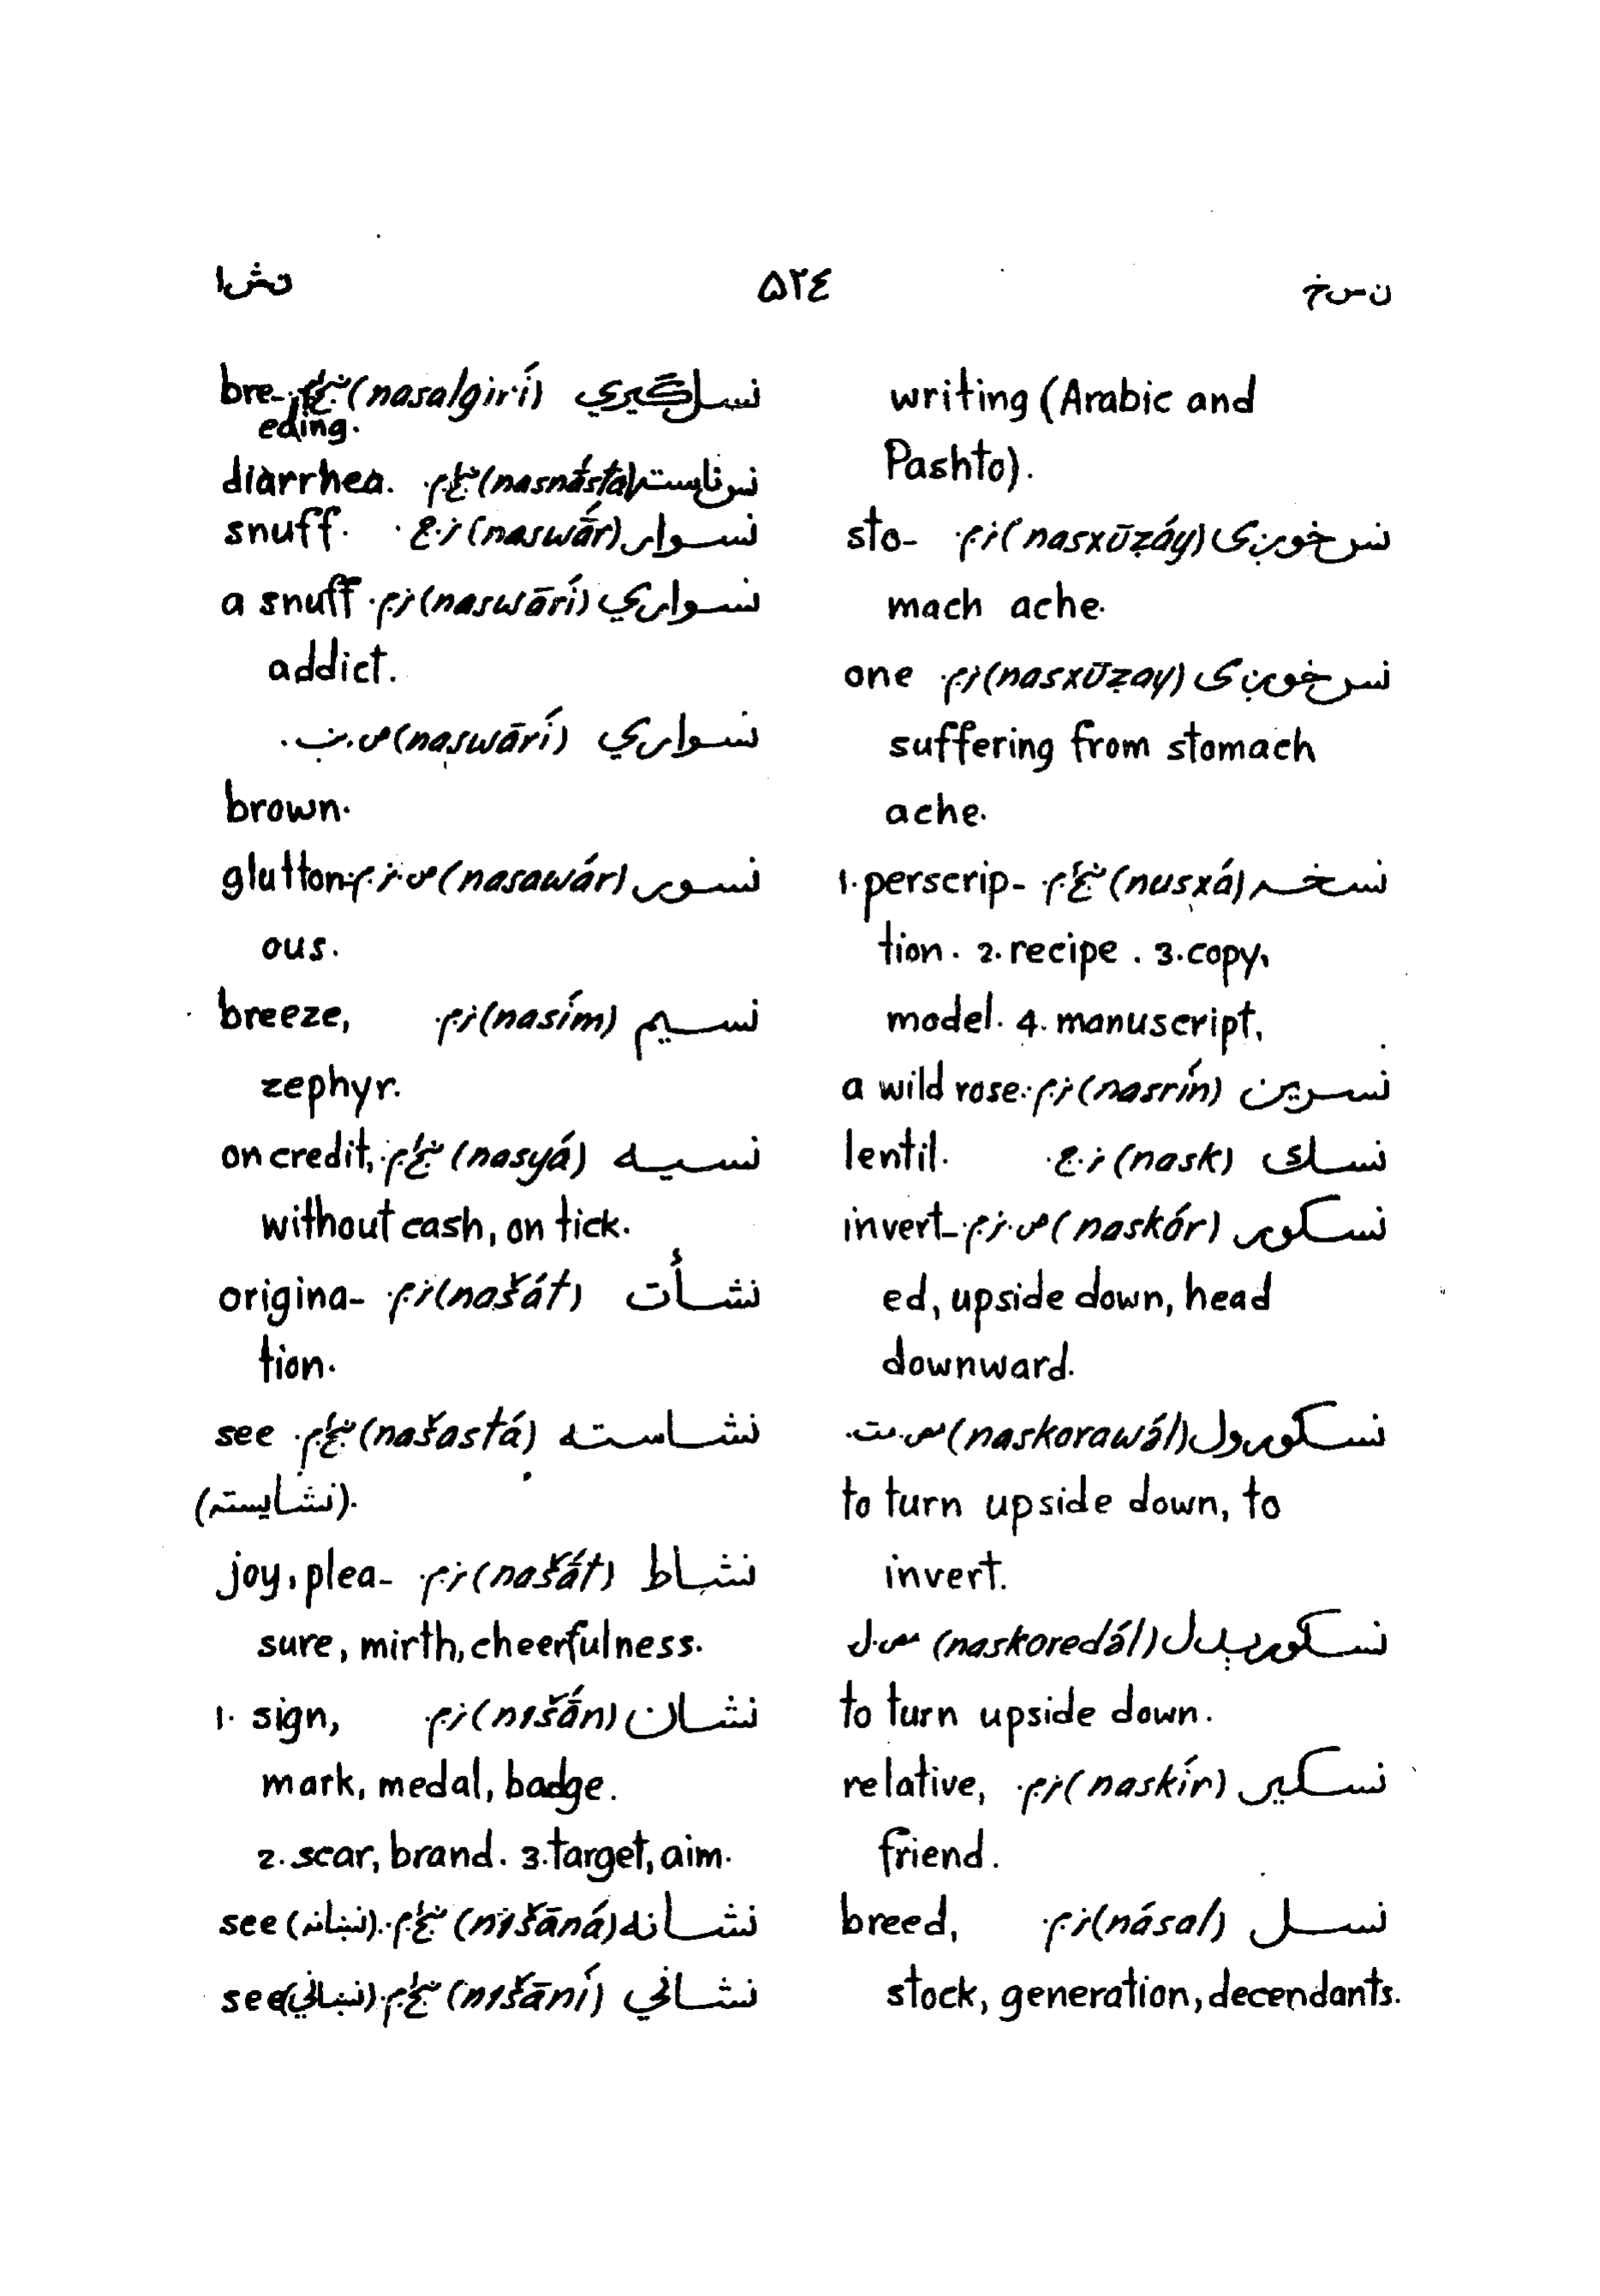 ن س خ ۵۲٤ ن ش ا
writing (Arabic and
Pashto).
نس خوږی (nasxūẓáy) ن.م. sto-
mach ache.
نس خوږی (nasxūẓay) ن.م. one
suffering from stomach
ache.
نسخه (nusxá) ښځ.م. 1. perscrip-
tion. 2. recipe. 3. copy,
model. 4. manuscript,
نسرین (nasrín) ن.م. a wild rose.
نسك (nask) ن.ج. lentil.
نسكور (naskór) ص.ن.م. invert-
ed, upside down, head
downward.
نسكورول (naskorawə́l) مص.مت.
to turn upside down, to
invert.
نسكورېدل (naskoredə́l) مص.ل
to turn upside down.
نسكیر (naskír) ن.م. relative,
friend.
نسل (násal) ن.م. breed,
stock, generation, decendants.
نسل‌ګيري (nasalgirí) ښځ.م. bre-
eding.
نس ناسته (nasnā́sta) ښځ.م. diarrhea.
نسوار (naswā́r) ن.ج. snuff.
نسواري (naswārí) ن.م. a snuff
addict.
نسواري (naswārí) ص.ب.
brown.
نسور (nasawár) ص.ن.م. glutton-
ous.
نسيم (nasím) ن.م. breeze,
zephyr.
نسيه (nasyá) ښځ.م. on credit,
without cash, on tick.
نشأت (našát) ن.م. origina-
tion.
نشاسته (našastá) ښځ.م. see
(نشايسته).
نشاط (našā́t) ن.م. joy, plea-
sure, mirth, cheerfulness.
نشان (nišā́n) ن.م. 1. sign,
mark, medal, badge.
2. scar, brand. 3. target, aim.
نشانه (nišāná) ښځ.م. see (نښانه).
نشاني (nišāní) ښځ.م. see (نښاني)